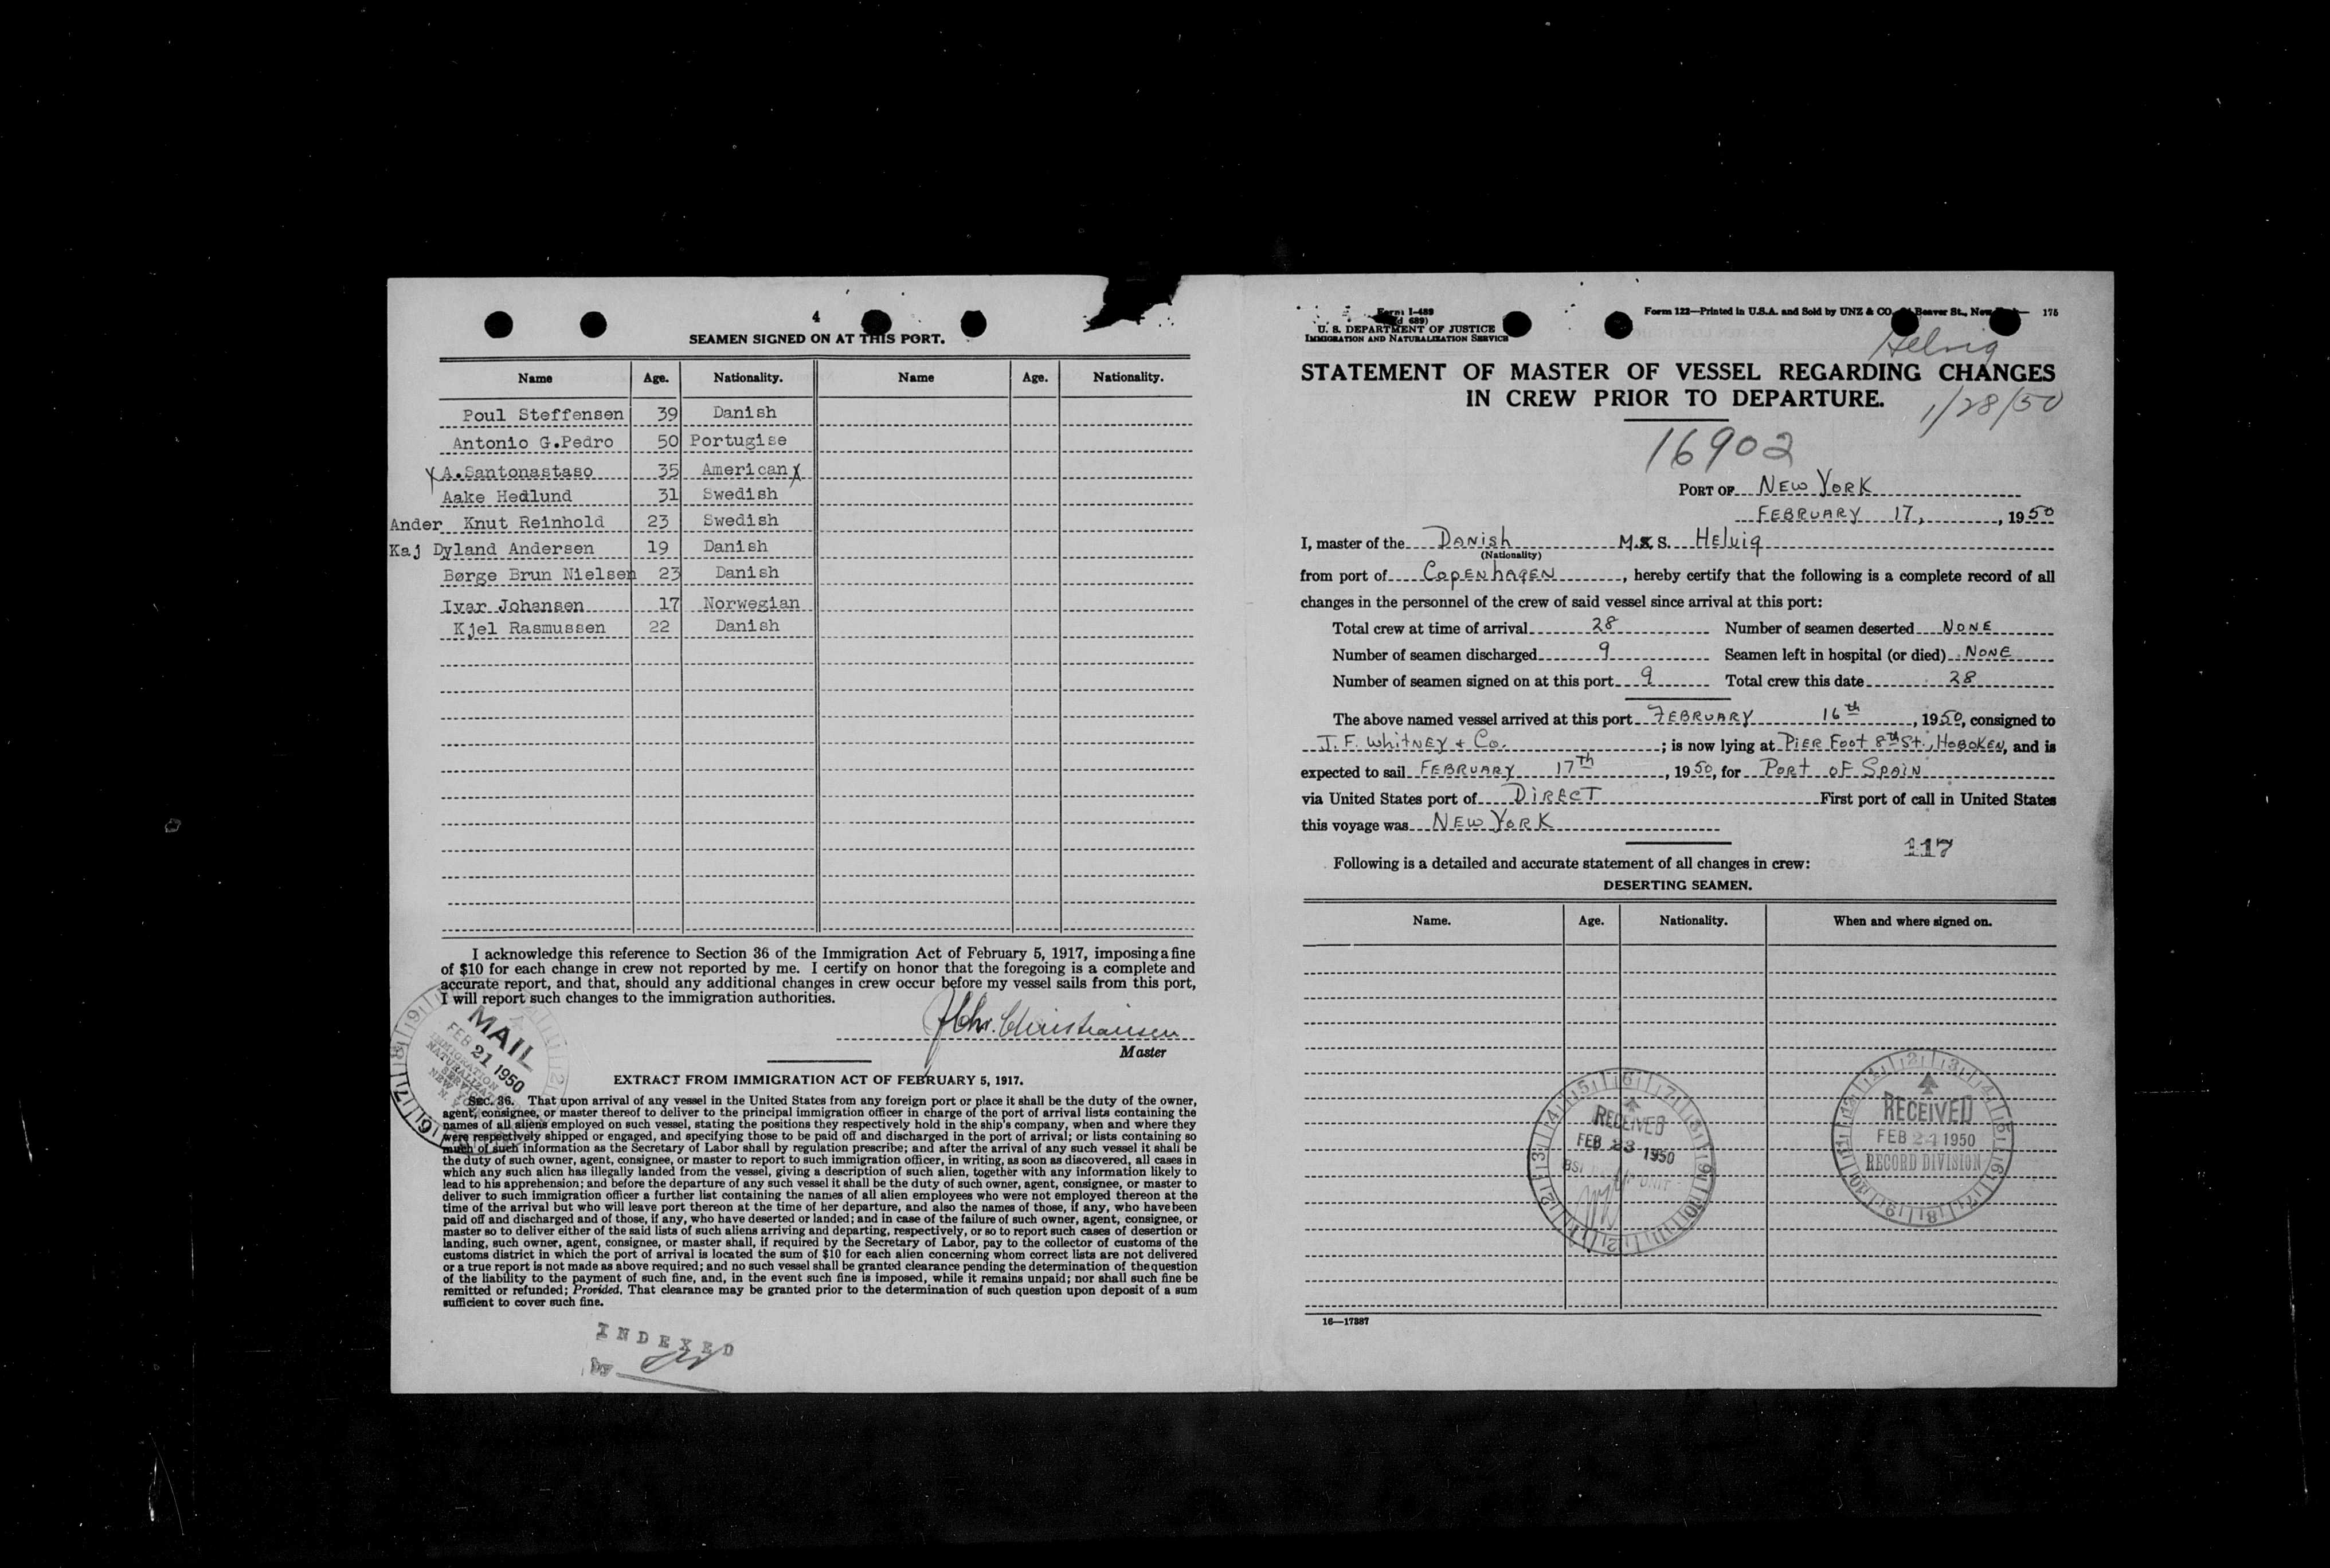 4
SEAMEN SIGNED ON AT THIS PORT.
Name Age. Nationality. Name Age. Nationality.
Poul Steffensen 39 Danish
Antonio G.Pedro 50 Portugise
X A.Santonastaso 35 American X
Aake Hedlund 31 Swedish
Ander Knut Reinhold 23 Swedish
Kaj Dyland Andersen 19 Danish
Børge Brun Nielsen 23 Danish
Ivar Johansen 17 Norwegian
Kjel Rasmussen 22 Danish
I acknowledge this reference to Section 36 of the Immigration Act of February 5, 1917, imposing a fine
of $10 for each change in crew not reported by me. I certify on honor that the foregoing is a complete and
accurate report, and that, should any additional changes in crew occur before my vessel sails from this port,
I will report such changes to the immigration authorities.
Chr. Christiansen
Master
MAIL
FEB 21 1950
IMMIGRATION
NATURALIZATION
SERVICE
NEW YORK
N. Y.
EXTRACT FROM IMMIGRATION ACT OF FEBRUARY 5, 1917.
SEC. 36. That upon arrival of any vessel in the United States from any foreign port or place it shall be the duty of the owner,
agent, consignee, or master thereof to deliver to the principal immigration officer in charge of the port of arrival lists containing the
names of all aliens employed on such vessel, stating the positions they respectively hold in the ship's company, when and where they
were respectively shipped or engaged, and specifying those to be paid off and discharged in the port of arrival; or lists containing so
much of such information as the Secretary of Labor shall by regulation prescribe; and after the arrival of any such vessel it shall be
the duty of such owner, agent, consignee, or master to report to such immigration officer, in writing, as soon as discovered, all cases in
which any such alien has illegally landed from the vessel, giving a description of such alien, together with any information likely to
lead to his apprehension; and before the departure of any such vessel it shall be the duty of such owner, agent, consignee, or master to
deliver to such immigration officer a further list containing the names of all alien employees who were not employed thereon at the
time of the arrival but who will leave port thereon at the time of her departure, and also the names of those, if any, who have been
paid off and discharged and of those, if any, who have deserted or landed; and in case of the failure of such owner, agent, consignee, or
master so to deliver either of the said lists of such aliens arriving and departing, respectively, or so to report such cases of desertion or
landing, such owner, agent, consignee, or master shall, if required by the Secretary of Labor, pay to the collector of customs of the
customs district in which the port of arrival is located the sum of $10 for each alien concerning whom correct lists are not delivered
or a true report is not made as above required; and no such vessel shall be granted clearance pending the determination of the question
of the liability to the payment of such fine, and, in the event such fine is imposed, while it remains unpaid; nor shall such fine be
remitted or refunded; Provided, That clearance may be granted prior to the determination of such question upon deposit of a sum
sufficient to cover such fine.
INDEXED
by
Form I-489
689)
U. S. DEPARTMENT OF JUSTICE
IMMIGRATION AND NATURALIZATION SERVICE
Form 122—Printed in U.S.A. and Sold by UNZ & CO. Beaver St., New 175
Helvig
STATEMENT OF MASTER OF VESSEL REGARDING CHANGES
IN CREW PRIOR TO DEPARTURE.
1/28/50
16902
PORT OF NEW YORK
FEBRUARY 17, , 1950
I, master of the DANISH M.S. HELVIG
(Nationality)
from port of COPENHAGEN , hereby certify that the following is a complete record of all
changes in the personnel of the crew of said vessel since arrival at this port:
Total crew at time of arrival 28 Number of seamen deserted NONE
Number of seamen discharged 9 Seamen left in hospital (or died) NONE
Number of seamen signed on at this port 9 Total crew this date 28
The above named vessel arrived at this port FEBRUARY 16th , 1950, consigned to
J. F. WHITNEY & Co. ; is now lying at PIER FOOT 8TH St., HOBOKEN, and is
expected to sail FEBRUARY 17Th , 1950, for PORT OF SPAIN
via United States port of DIRECT First port of call in United States
this voyage was NEW YORK
117
Following is a detailed and accurate statement of all changes in crew:
DESERTING SEAMEN.
Name. Age. Nationality. When and where signed on.
RECEIVED
FEB 23 1950
BSI UNIT
RECEIVED
FEB 24 1950
RECORD DIVISION
16—17887